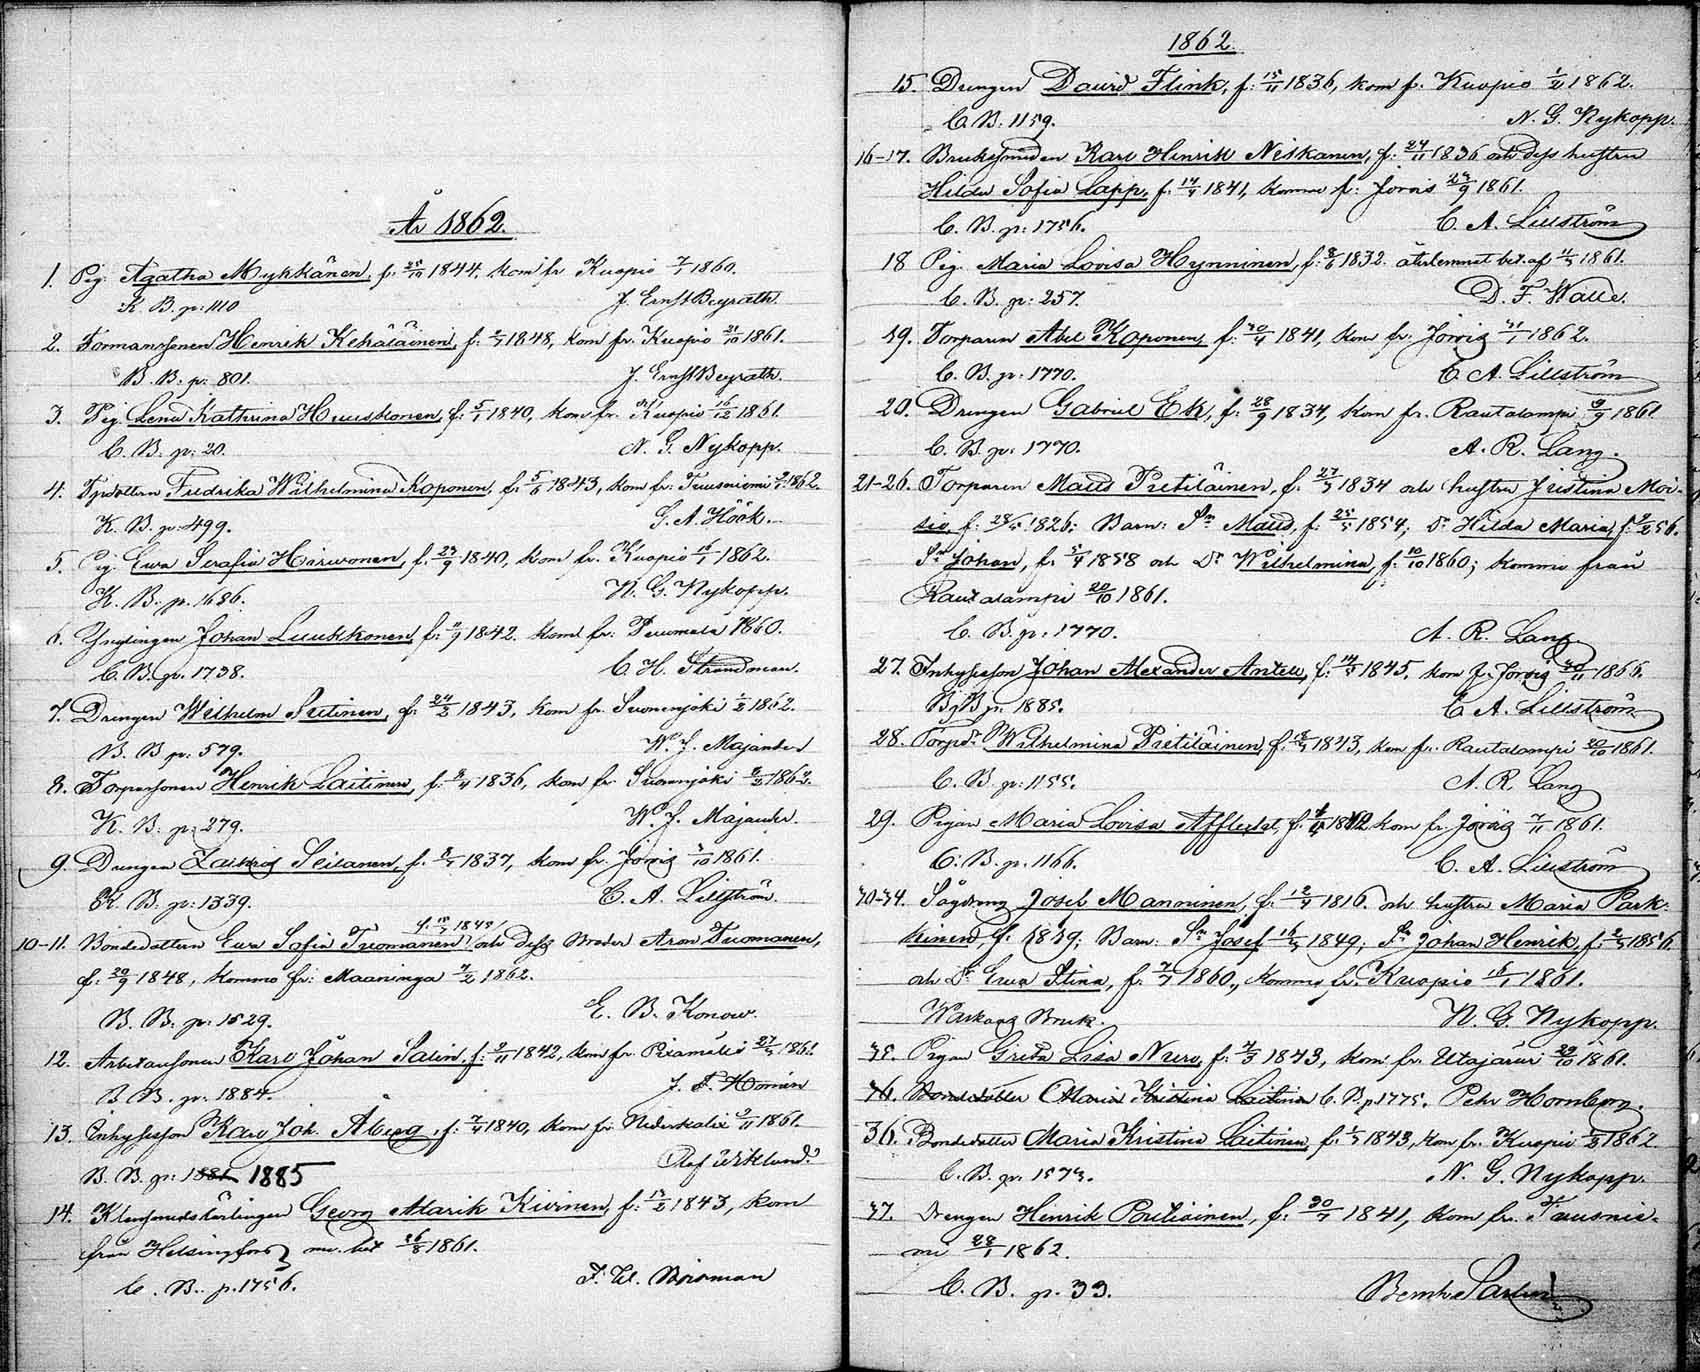 År 1862.
1. Pig. Agatha Mykkänen, f. 25/10 1844, kom fr Kuopio 7/1 1860.
K. B. p: 1110 J. Ernst Beyrath
2. Formanssonen Henrik Kehäläinen, f: 1848, kom fr. Kuopio 21/10 1861.
B. B. p: 801. J. Ernst Beyrath.
3. Pig. Lena Kathrina Huuskonen, f: 5/1 1840, kom fr. Kuopio 16/12 1861.
C. B. p: 20. N. G. Nykopp.
4. Fredrika Wilhelmina Koponen, f: 5/6 1843, kom fr: Tuusniemi 1862
K. B. p: 499. G. A. Höök.
5. Pig. Ewa Serafia Harwonen, f: 23/9 1840, kom fr. Kuopio 16/1 1862.
K. B. p. 1686. N. G. Nykopp.
6. Ynglingen Johan Luukkonen, f: 11/9 1842. kom fr: 1860.
C. B. p. 1738. C. H. Strandman.
7. Drengen Wilhelm Sutinen, f: 24/2 1843, kom fr. Suonenjoki 1/2 1862.
B. B. p: 579. W. J. Majander
8. Torparsonen Henrik Laitinen, f: 1836, kom fr. Suonenjoki 1862.
K. B. p: 279. W. J. Majander.
9. Drengen Zakrig Seilanen, f. 1837, kom fr. Jorois 1861.
K. B. p: 1339. C. A. Lillström
10-11. Bondedottern Ewa Sofia Tuomanen och Dess Broder Aron Tuomanen,
f. 20/9 1848, komna fr: Maaninga 1862.
B. B. p: 1529. E. B. Konow.
12. Arbetaresonen Karl Johan Salin, f: 1842, kom fr. 27/3 1861
B. B. p: 1884. J. F. Homén
13. Inhysesson Karl Joh. Åberg, f: 7/4 1840, kom fr. Nederkalix 1861.
B. B. p: 1881 1885 Olof Wiklund.
14. Klensmedslärlingen Georg Alarik Kivinen, f: 13/2 1843, kom
från Helsingfors m. bet 26/8 1861.
C. B. p. 1756. F. W.
1862.
15. Drengen David Flink, f: 15/11 1836, kom fr. Kuopio 1/2 1862.
C. B. 1159. N. G. Nykopp.
16-17. Bruksmeden Karl Henrik Neskanen, f: 24/11 1836 och dess hustru
Hilda Sofia Lapp, f. 1841, komna fr: Jorois 1861.
C. B. p: 1756. C. A. Lillström
18 Pig. Maria Lovisa Hynninen, f: 1832. återlemnat bet. af 1861.
C. B. p: 257. D. F. Walle.
19. Torparen Abel Koponen, f: 1841, kom fr: Jorois 31/1 1862.
C. B. p: 1770. C. A. Lillström
20. Drengen Gabriel Ek, f: 28/9 1834, kom fr. Rautalampi 1861
C. B. p. 1770. A. R. Lang.
21-26. Torparen Mats Pietiläinen, f. 1834 och hustru Kristina Moi-
sio, f: 1826; Barn: Sn Mats, f: 25/5 1854; Dr Hilda Maria, f: 56.
Sn Johan, f: 1858 och Dr Wilhelmina, f: 10/10 1860; komna från
Rautalampi 20/10 1861.
C. B. p: 1770. A. R. Lang.
27. Inhysesson Johan Alexander Antell, f: 1845, kom fr. Jorois 1866.
B. B. p: 1885. C. A. Lillström
28. Torpdr Wilhelmina Pietiläinen, f: 1843, kom fr. Rautalampi 20/10 1861.
C. B. p: 1155. A. R. Lang
29. Pigan Maria Lovisa Afflecht, f: kom fr. Jorois 7/11 1861.
C. B. p. 1166. C. A. Lillström
30-34. Sågdreng Josef Manninen, f: 1816. och hustru Maria Park-
kinen, f. 1839; Barn: Sn Josef 1849; Sn Johan Henrik, f: 1856
och Dr Ewa Stina, f: 1860, komna fr. Kuopio 16/1 1861.
Warkaus Bruk. N. G. Nykopp.
35. Pigan Greta Lisa Nuro, f: 1843, kom fr. Utajärvi 29/10 1861.
36. Bondedotter Maria Kristina Laitinen C. B. p 1775. Petr Hornborg.
36. Bondedotter Maria Kristina Laitinen, f: 1843, kom fr. Kuopio 1862
C. B. p. 1573. N. G. Nykopp.
37. Drengen Henrik Poutiainen, f: 30/7 1841, kom fr. Tuusnie-
mi 28/1 1862.
C. B. p. 33. Bernh Sarlin